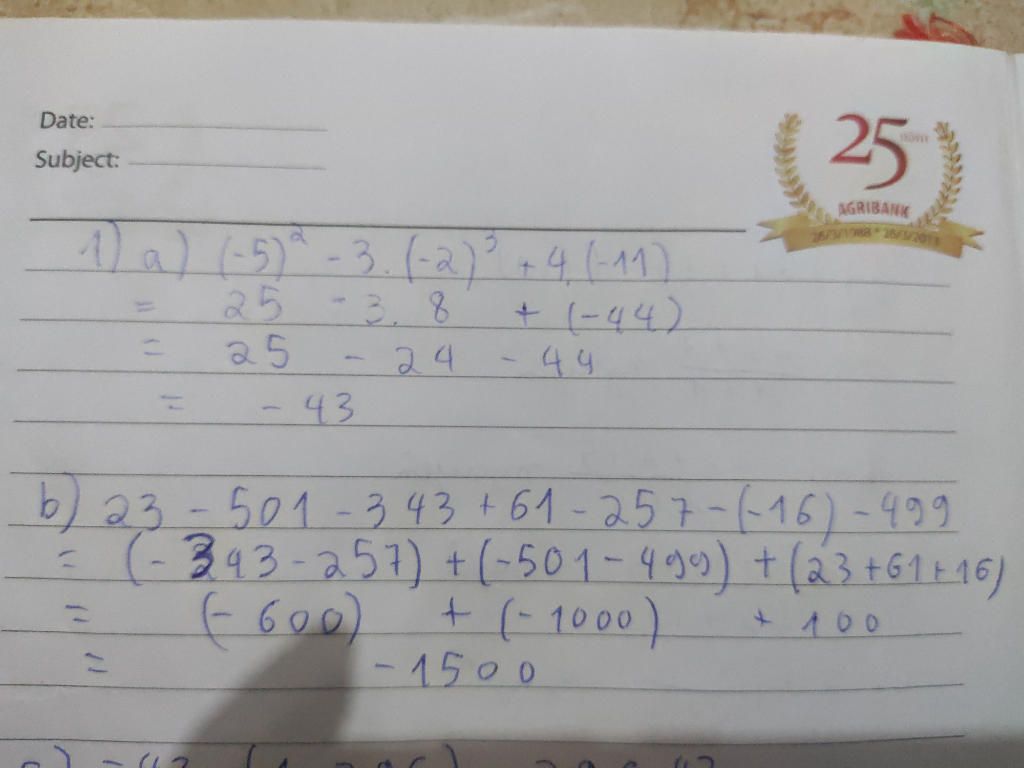 Date:
Subject:
25
AGRIBANK
26/3/1988 * 26/3/2013
1) a) (-5)² - 3. (-2)³ + 4. (-11)
= 25 - 3. 8 + (-44)
= 25 - 24 - 44
= - 43
b) 23 - 501 - 343 + 61 - 257 - (-16) - 499
= (- 343 - 257) + (-501 - 499) + (23 + 61 + 16)
= (- 600) + (- 1000) + 100
= - 1500